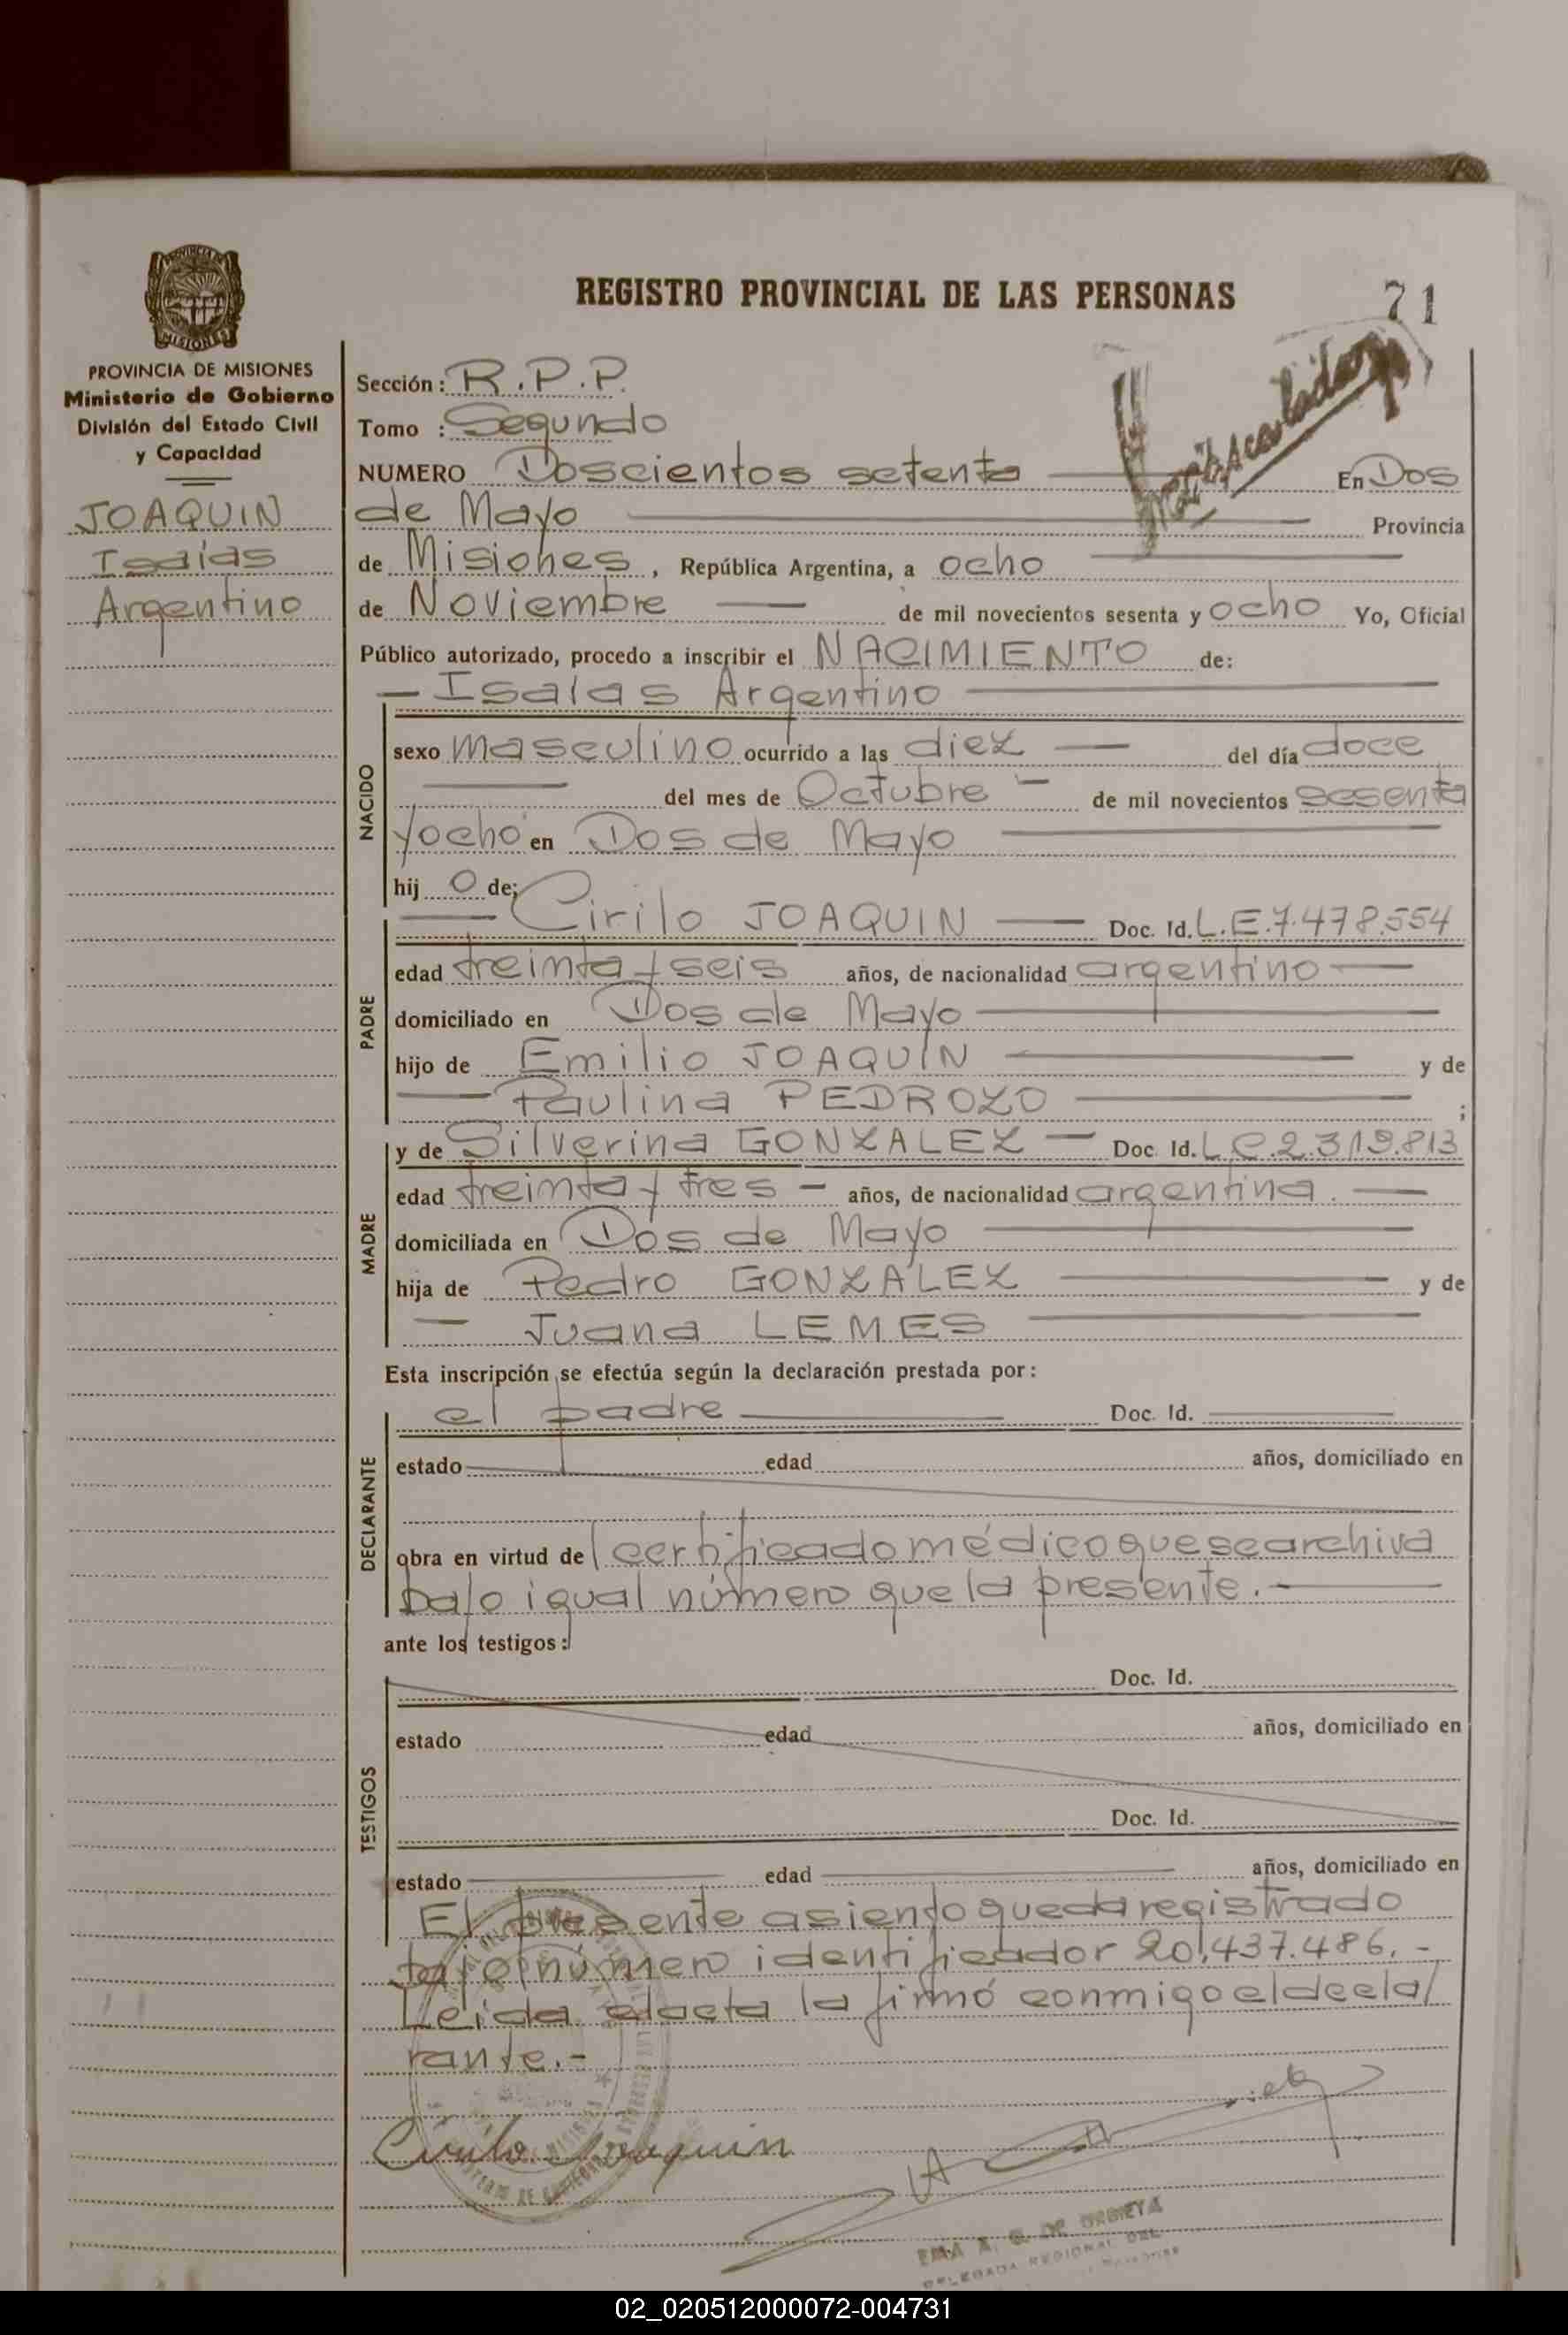 REGISTRO PROVINCIAL DE LAS PERSONAS
71
PROVINCIA DE MISIONES
Ministerio de Gobierno
División del Estado Civil
y Capacidad
JOAQUIN
Isaías
Argentino
Sección: R.P.P.
Tomo : Segundo
NUMERO Doscientos setenta En Dos
de Mayo Provincia
de Misiones, República Argentina, a ocho
de Noviembre de mil novecientos sesenta y ocho Yo, Oficial
Público autorizado, procedo a inscribir el NACIMIENTO de:
Isaías Argentino
NACIDO
sexo masculino ocurrido a las diez del día doce
del mes de Octubre de mil novecientos sesenta
y ocho en Dos de Mayo
hij o de;
PADRE
Cirilo JOAQUIN Doc. Id. L.E.7.478.554
edad treinta y seis años, de nacionalidad argentino
domiciliado en Dos de Mayo
hijo de Emilio JOAQUIN y de
Paulina PEDROZO ;
MADRE
y de Silverina GONZALEZ Doc. Id. L.C.2.319.813
edad treinta y tres años, de nacionalidad argentina.
domiciliada en Dos de Mayo
hija de Pedro GONZALEZ y de
Juana LEMES
Esta inscripción se efectúa según la declaración prestada por:
DECLARANTE
el padre Doc. Id.
estado edad años, domiciliado en
obra en virtud de l certificado médico que se archiva
bajo igual número que la presente.
ante los testigos:
TESTIGOS
Doc. Id.
estado edad años, domiciliado en
Doc. Id.
estado edad años, domiciliado en
El presente asiento queda registrado
bajo número identificador 20.437.486.-
Leída el acta la firmó conmigo el decla/
rante.-
Cirilo Joaquin
DELEGADA REGIONAL DEL
02_020512000072-004731